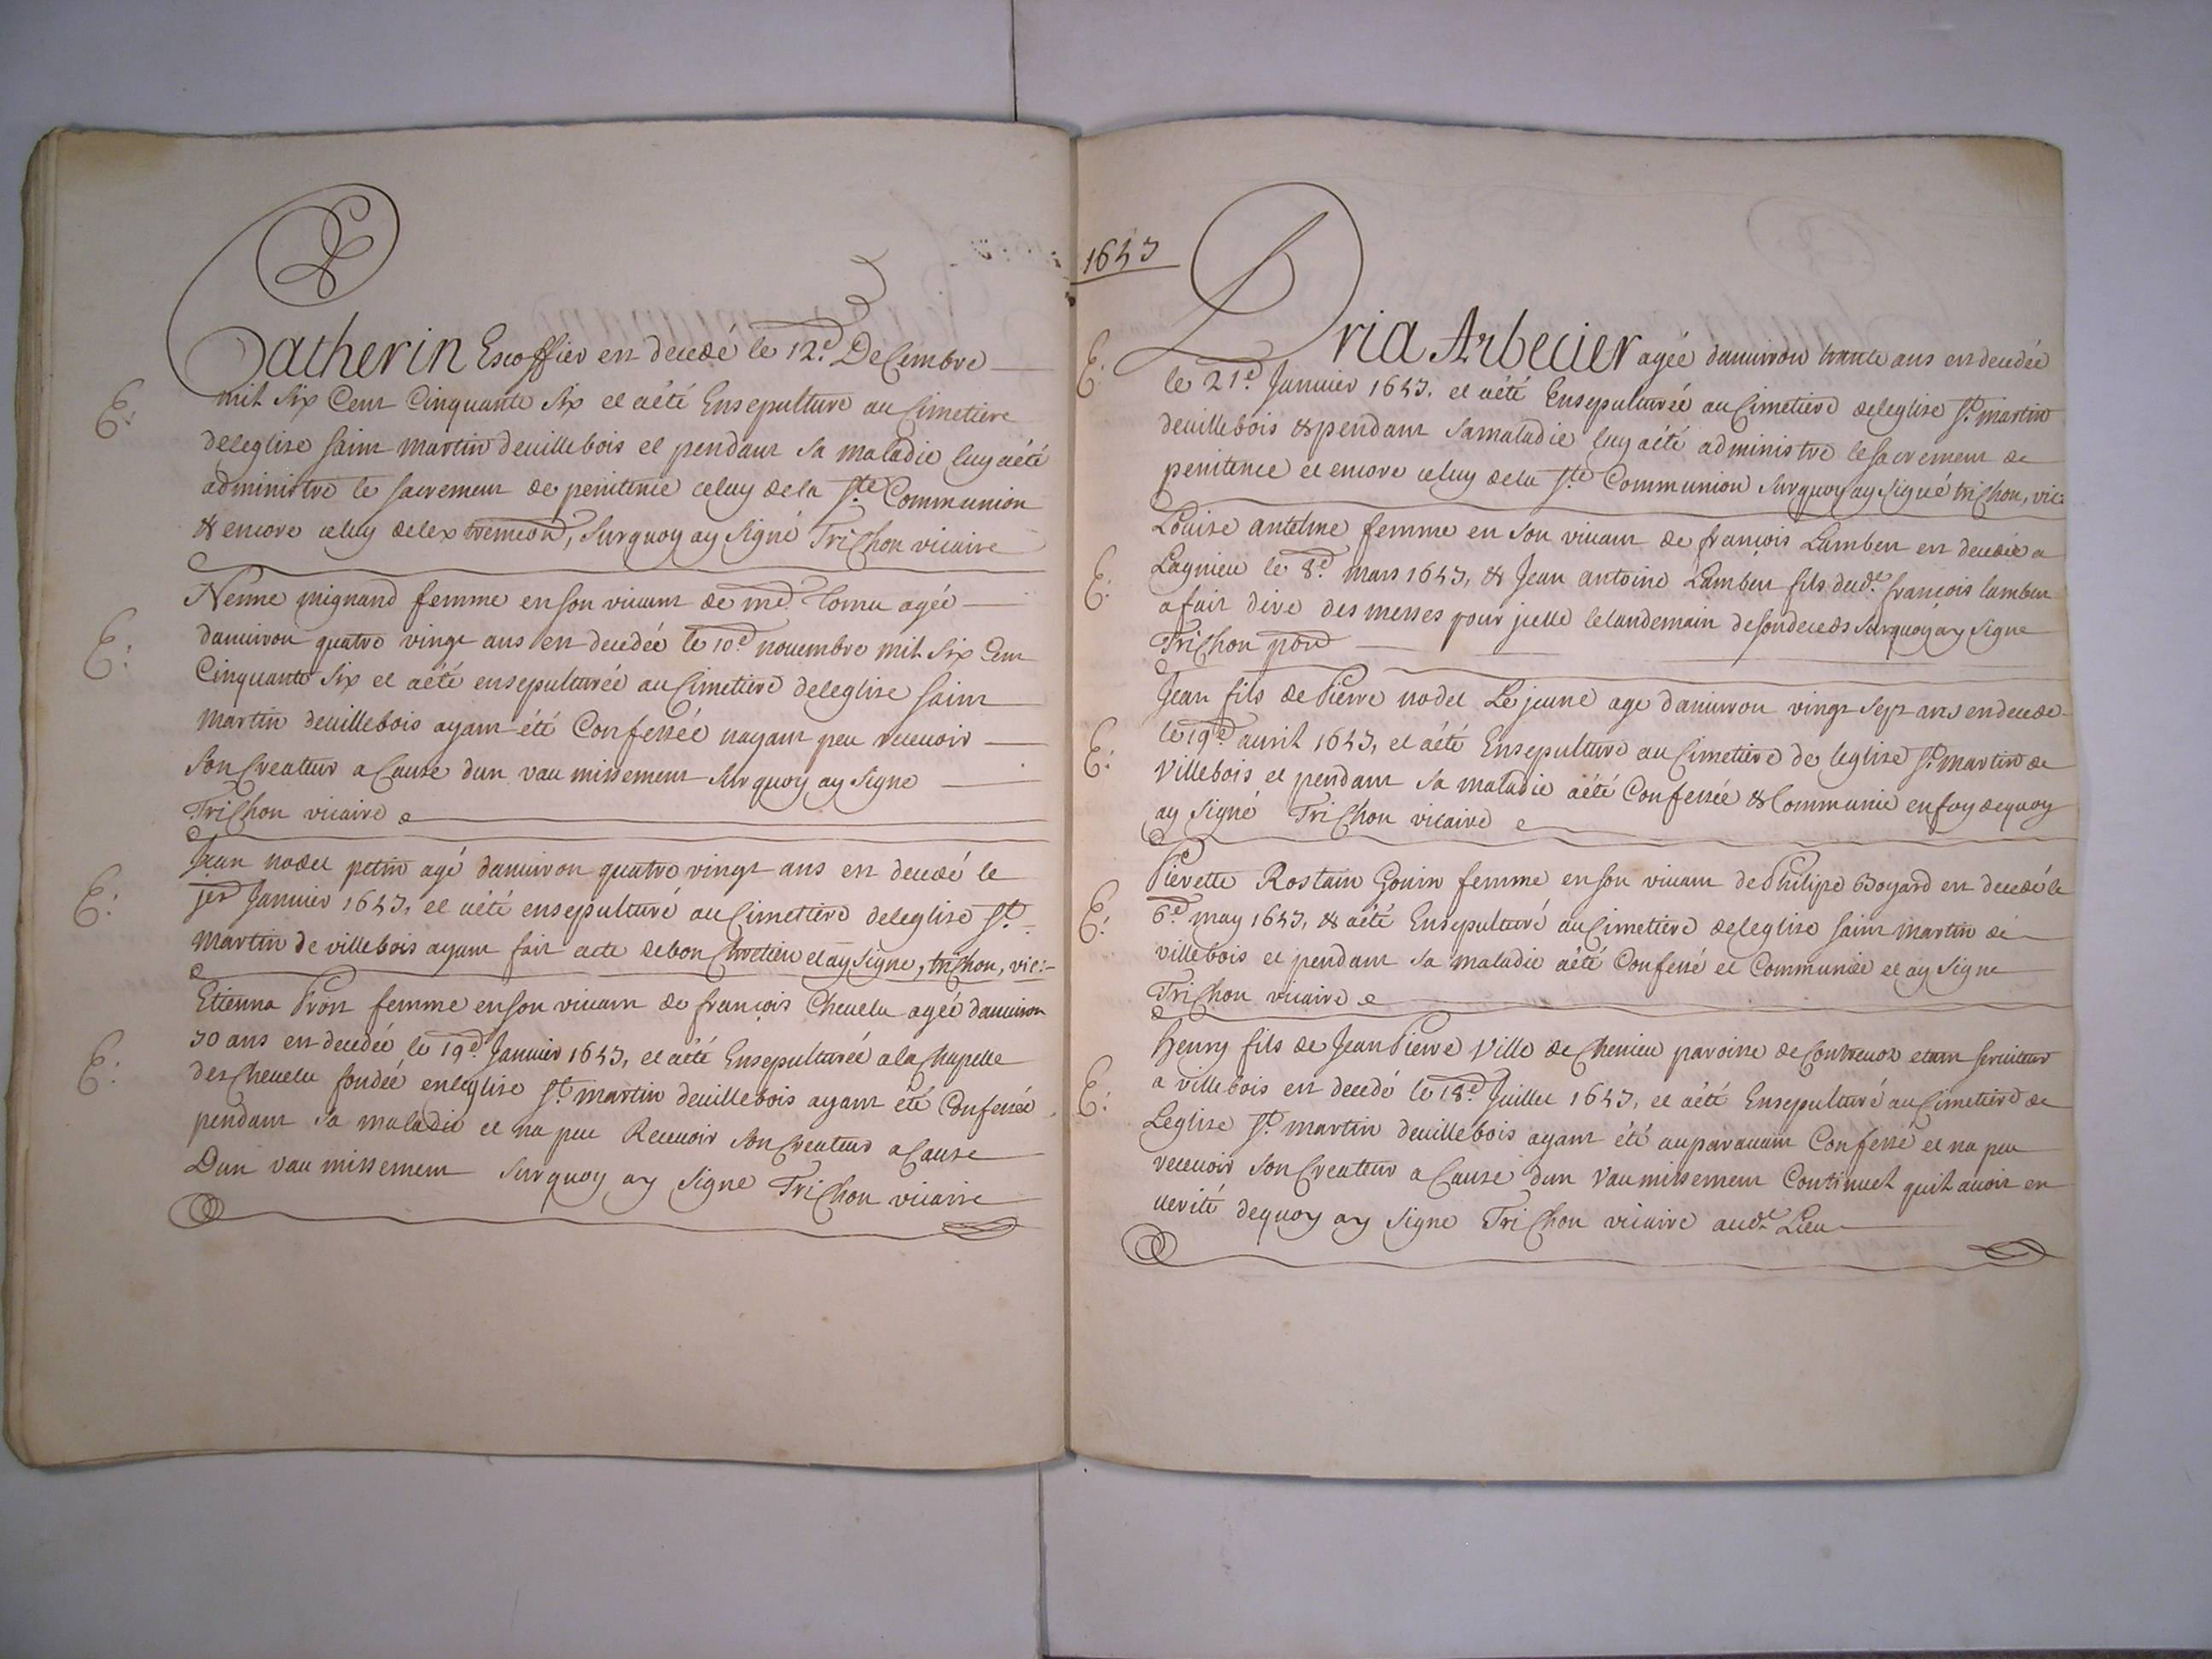 Catherin Escoffier est decedé le 12.e Decembre
E:
mil six Cent Cinquante six et aété Ensepulture au Cimetiere
deleglise saint martin deuillebois et pendant sa maladie luy aété
administre le sacrement de penitence celuy dela Ste Communion
& encore celuy delextremeon, surquoy ay signé Trichon vicaire
Nenne mignand femme enson viuant de md. Comu agée
E:
danuiron quatre vingt ans est decedée le 10.e nouembre mil six Cent
Cinquante six et aété ensepulturée au Cimetiere deleglise saint
martin deuillebois ayant été Confessée nayant peu receuoir
son Createur a Cause dun vaumissement surquoy ay signe
Trichon vicaire
Jean nodet petin agé danuiron quatre vingt ans est decedé le
E:
jer Januier 1657, et aété ensepulturé au Cimetiere deleglise St
martin de villebois ayant fait acte debon Chretien et ay signe, trichon, vic:
Etienna Pron femme enson viuant de françois Cheuelu agée danuiron
30 ans est decedée le 19.e Januier 1657, et aété Ensepulturée a la Chapelle
E:
des Cheuelu fondée enleglise St. martin deuillebois ayant été Confessée
pendant sa maladie et na peu Receuoir son Createur a Cause
Dun vaumissement surquoy ay signe Trichon vicaire
1657
Pria Arbecier agée danuiron trante ans est decedée
E:
le 21.e Januier 1657. et aété Ensepulturée au Cimetiere deleglise St. martin
deuillebois & pendant samaladie luy aété administre lesacrement de
penitence et encore celuy dela Ste Communion surquoy ay signé trichon, vic:
Louise antelme femme en son viuant de françois Lambert est decedée a
E:
Lagnieu le 8.e mars 1657, & Jean antoine Lambert fils dud.t françois lambert
afait dire des messes pour jcelle lelandemain desondeceds surquoy ay signe
Trichon pbre
Jean fils de Pierre nodet Le jeune age danuiron vingt sept ans est decede
E:
le 19.e auril 1657, et aété Ensepulture au Cimetiere de leglise St. martin de
Villebois et pendant sa maladie aété Confessée & Communie enfoy dequoy
ay signé Trichon vicaire
Pierette Rostain Gouin femme enson viuant de Philipe Boyard est decedé le
E:
6.e may 1657, & aété Ensepulturé au Cimetiere deleglise saint martin de
villebois et pendant sa maladie aété Confessé et Communiée et ay signe
Trichon vicaire
Henry fils de Jean Pierre Ville de Chenieu paroisse de Contreuoz etant seruiteur
E:
a villebois est decedé le 18.e Juillet 1657, et aété Ensepulturé au Cimetiere de
Leglise St. martin deuillebois ayant été auparauant Confessé et na peu
receuoir son Createur a Cause dun Vaumissement Continuel quil auoit en
uerité dequoy ay signe Trichon vicaire aud.t Lieu